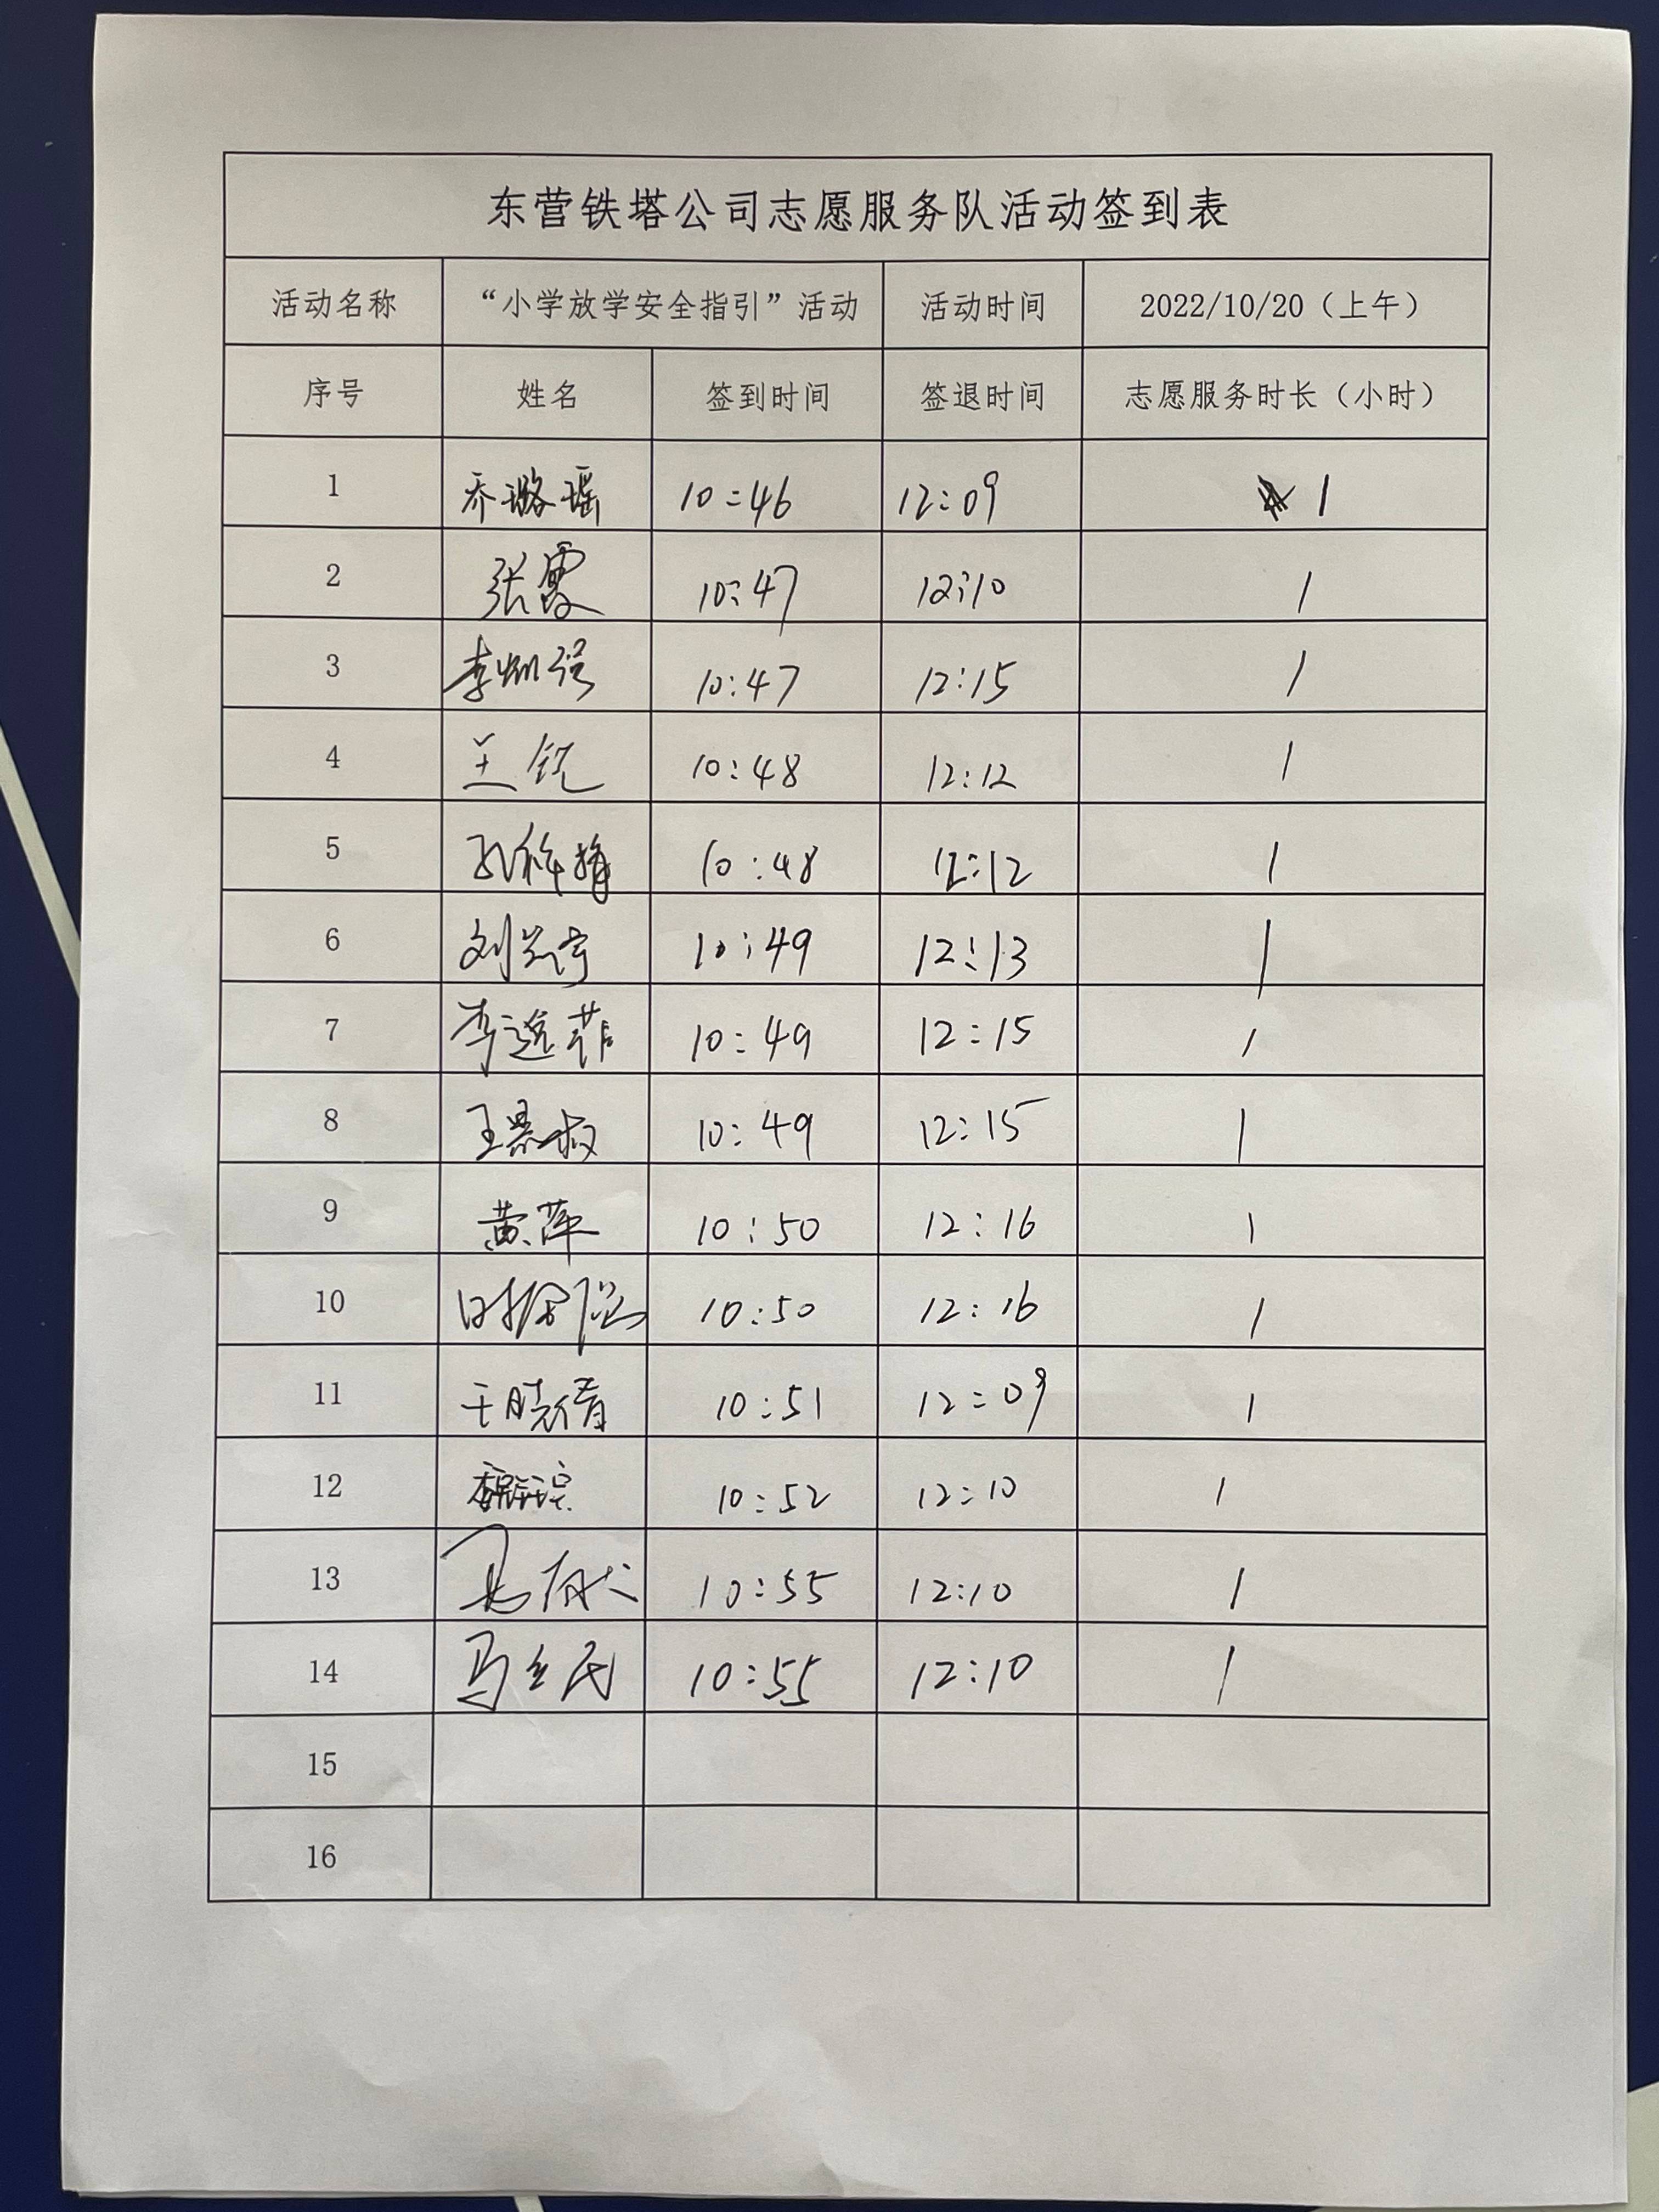 东营铁塔公司志愿服务队活动签到表
活动名称 “小学放学安全指引”活动 活动时间 2022/10/20（上午）
序号 姓名 签到时间 签退时间 志愿服务时长（小时）
1 乔璐瑶 10:46 12:09 1
2 张霞 10:47 12:10 1
3 10:47 12:15 1
4 10:48 12:12 1
5 10:48 12:12 1
6 10:49 12:13 1
7 10:49 12:15 1
8 10:49 12:15 1
9 黄萍 10:50 12:16 1
10 10:50 12:16 1
11 于晓倩 10:51 12:09 1
12 10:52 12:10 1
13 10:55 12:10 1
14 10:55 12:10 1
15
16